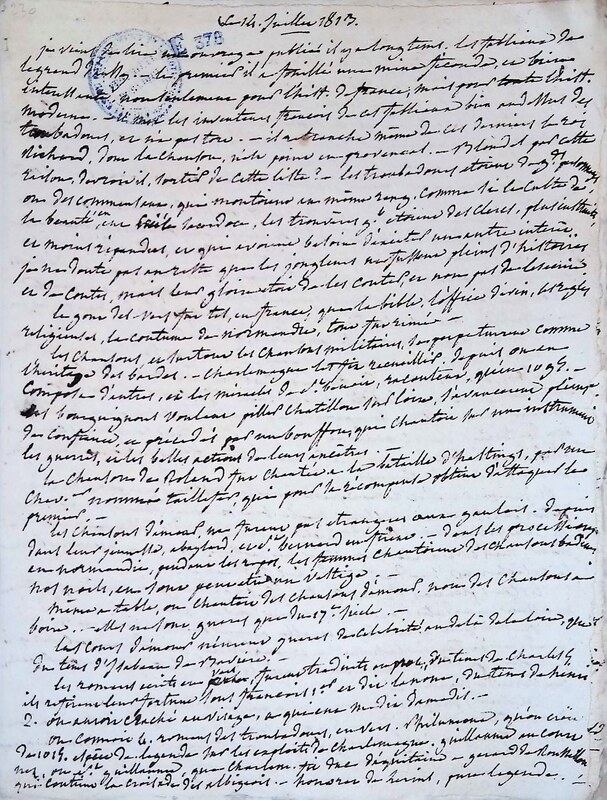 Le 14. juillet 1813.
E 378
je viens de lire un ouvrage publié il y a longtems. les fabliaux de
legrand le premier il a fouillé une mine féconde, et bien
interessante, non seulement pour l'hist. de france, mais pour toute l'hist.
moderne. les inventeurs françois de ces fabliaux bien audessus des
troubadours, et je pas tort. il retranche même de ces derniers le roi
Richard, dont la chanson, n'est point en provençal. Blondel par cette
raison, devroit il, sortir de cette liste? les troubadours étoient de
ou des commensaux, qui montoient au même rang, comme si le culte de
la beauté, en sacerdoce, les trouveres étoient des clercs, plus
et moins répandus, et que avoient besoin d'exciter un autre intérêt.
je ne doute pas au reste que les jongleurs ne fussent pleins d'histoires
et de contes, mais leur gloire étoit de les conter, et non pas de les écrire
le gout des vers fut tel, en france, que la bible, l'office divin, les regles
religieuses, la coutume de normandie, tout fut rimé.
les chansons, et surtout les chansons militaires, se perpetuerent comme
l'héritage des bardes. Charlemagne les fit recueillir, depuis on en
composa d'autres, et les miracles de St benoit, racontent, qu'en 1095.
des bourguignons voulant piller chatillon sur loire, s'avancerent pleins
de confiance, et précédés par un bouffon, qui chantoit sur un instrument
les guerres, et les belles actions de leurs ancêtres.
la chanson de Roland fut chantée a la bataille d'hastings, par un
nommé taillefer, qui pour sa récompense obtint d'attaquer le
premier.
les chansons d'amour, ne furent pas etrangeres aux gaulois. depuis
dans leur jeunesse, abaylard, et St bernard en firent. dans les processions
en normandie, pendant les repos, les femmes chantoient des chansons badines
nos noels, en sont peutetre un vestige.
même a table, on chantoit des chansons d'amour, non des chansons a
boire. elles ne sont, gueres que du 17e siecle.
les cours d'amour n'eurent gueres de celebrité au delà de la loire, que
du tems d'Isabeau de Baviere.
les romans écrits en vers, furent traduits en prose, du tems de Charles 6.
ils refirent leur fortune sous françois 1er et dit lanoue, du tems de henri
2. on auroit craché au visage, a qui en eut medit.
on connoit le roman des troubadours, en vers. Philumene, qu'on croit
de 1015. espece de legende sur les exploits de Charlemagne. guillaume au court
nez, ou St guillaume, que Charlem. fit duc d'aquitaine gerard de Roussillon
qui contient la croisade des albigeois. honorat de lerins, pure legende.